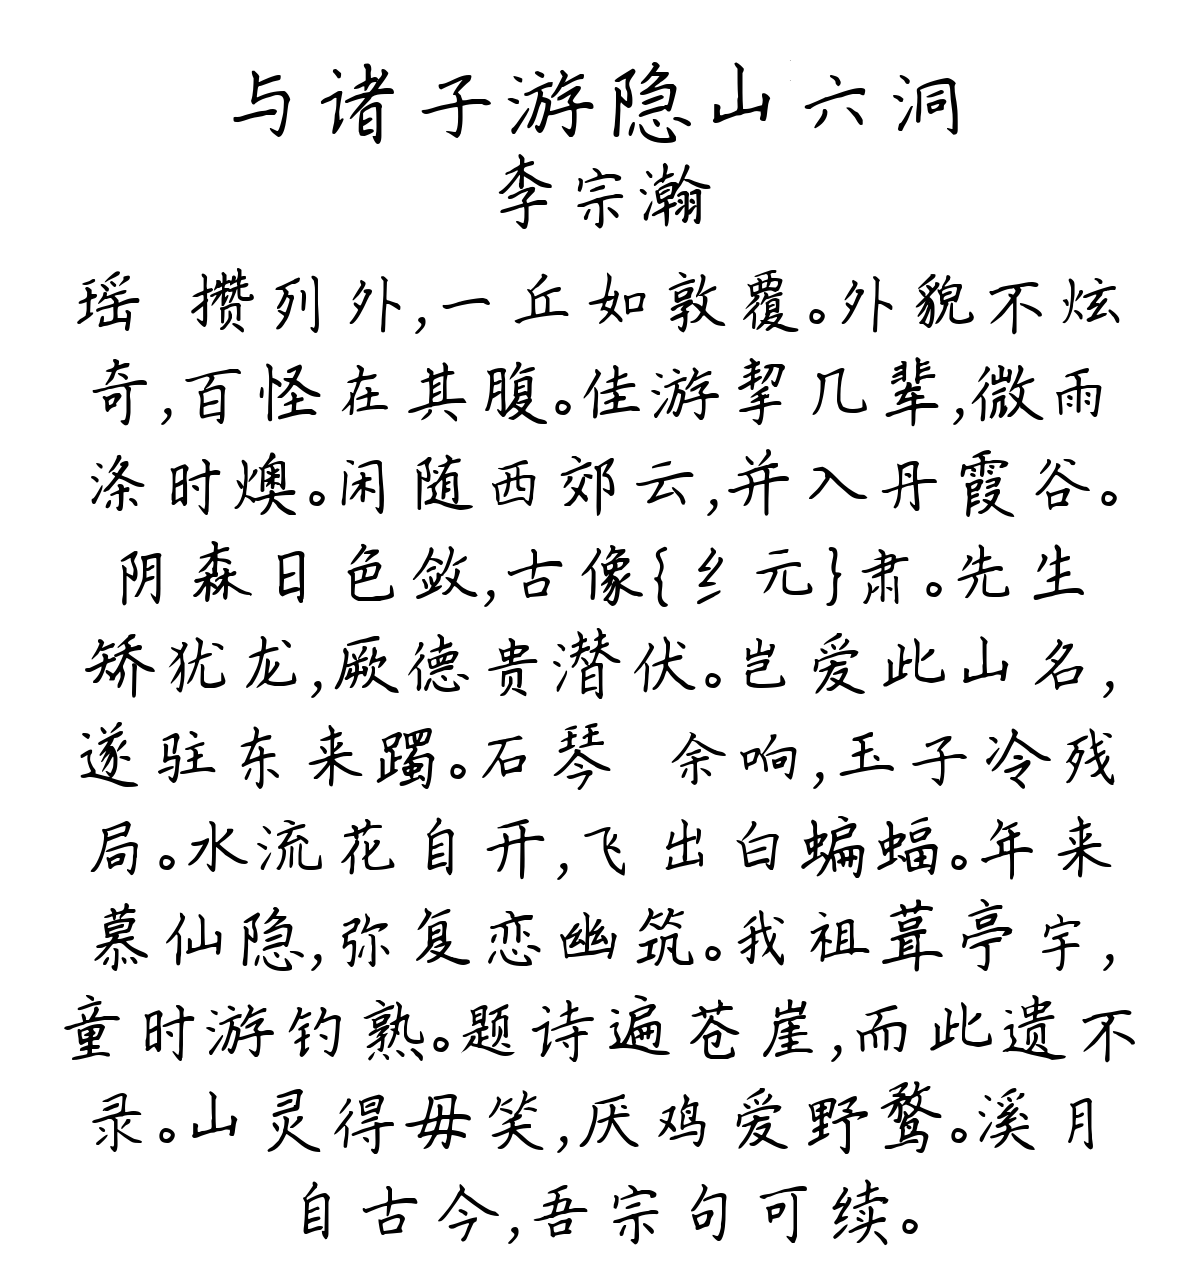 与诸子游隐山六洞
李宗瀚
瑶 攒列外,一丘如敦覆。外貌不炫
奇,百怪在其腹。佳游挈几辈,微雨
涤时燠。闲随西郊云,并入丹霞谷。
阴森日色敛,古像{纟元}肃。先生
矫犹龙,厥德贵潜伏。岂爱此山名,
遂驻东来躅。石琴 余响,玉子冷残
局。水流花自开,飞出白蝙蝠。年来
慕仙隐,弥复恋幽筑。我祖葺亭宇,
童时游钓熟。题诗遍苍崖,而此遗不
录。山灵得毋笑,厌鸡爱野鹜。溪月
自古今,吾宗句可续。